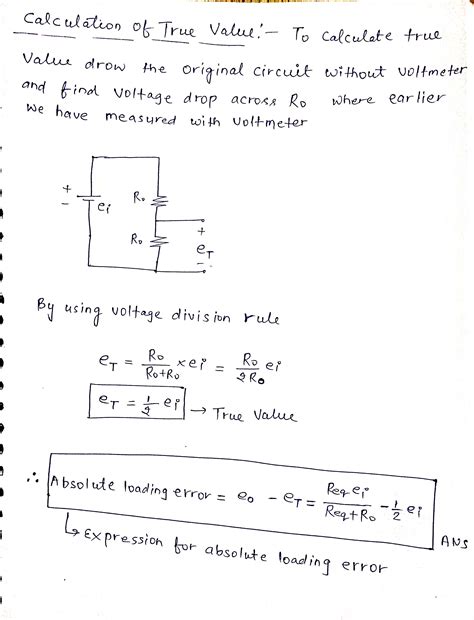 Calculation of True Value:- To calculate true
Value drow the original circuit without voltmeter
and find voltage drop across Ro where earlier
we have measured with voltmeter
+
-
ei
Ro
Ro
+
eT
-
By using voltage division rule
eT = Ro/(Ro+Ro) × ei = Ro/(2Ro) ei
eT = 1/2 ei → True Value
∴ Absolute loading error = eo - eT = Req ei/(Req+Ro) - 1/2 ei
ANS
↳ Expression for absolute loading error